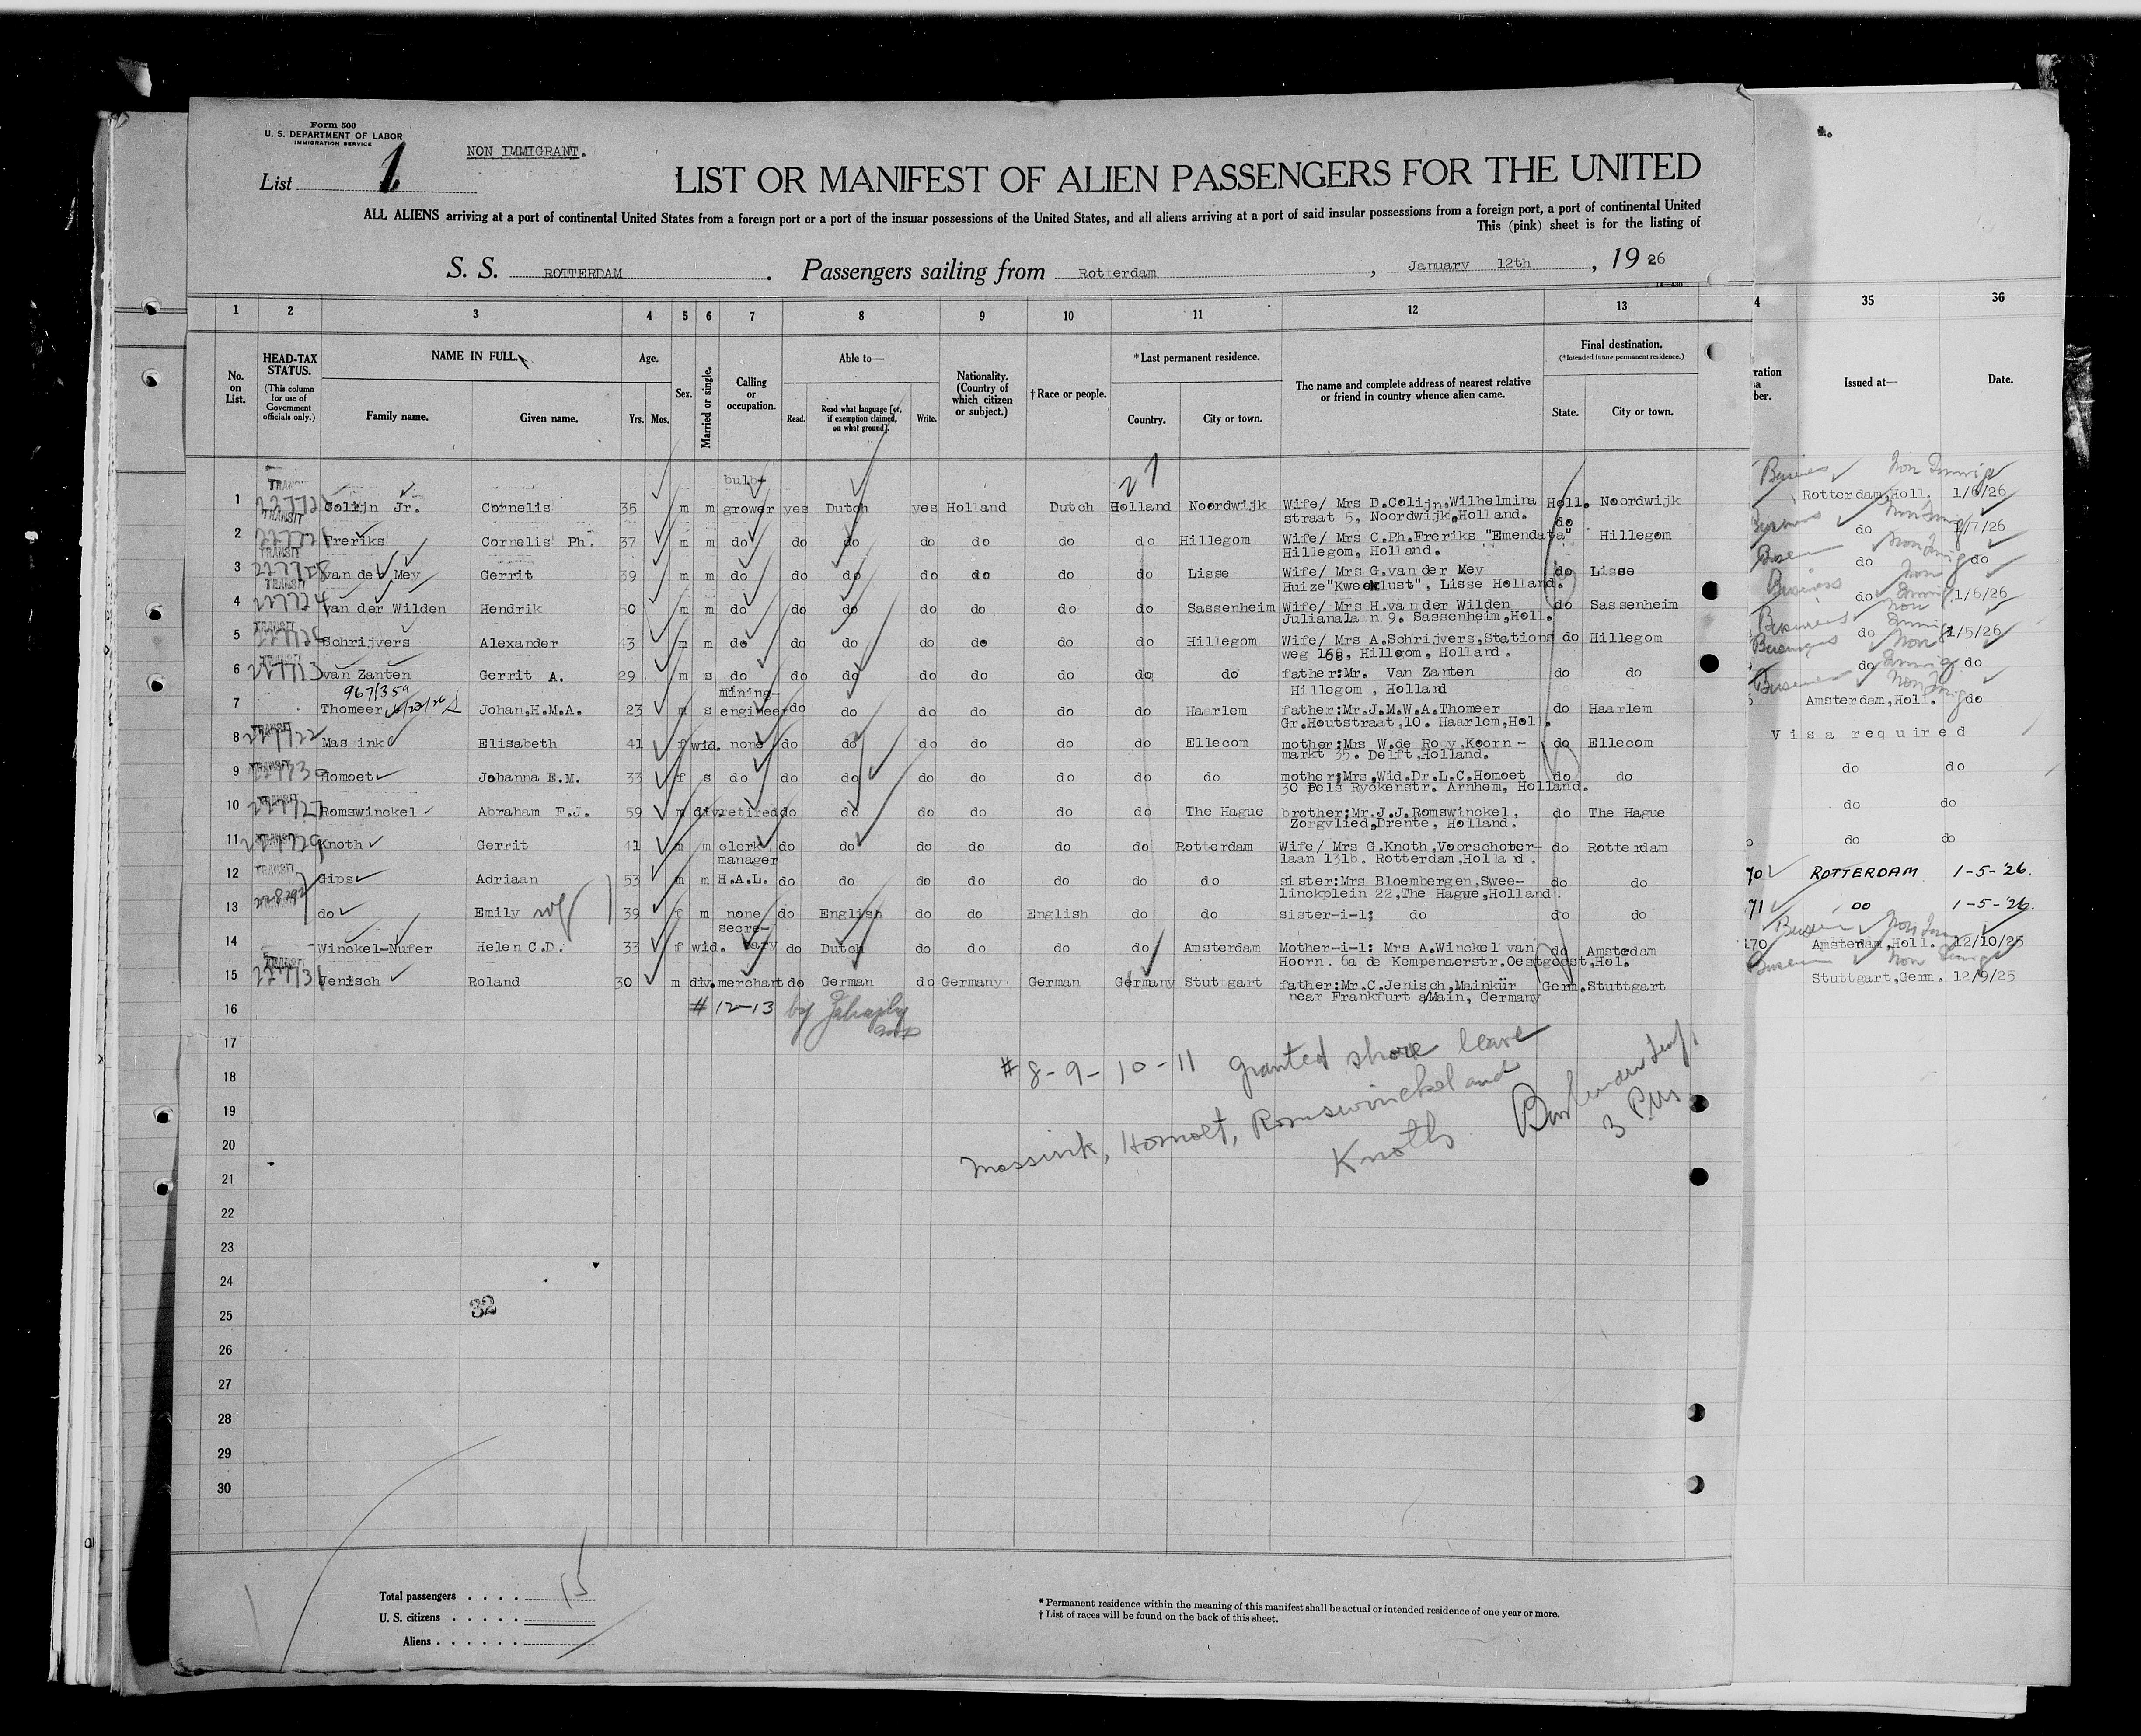 Form 500
U. S. DEPARTMENT OF LABOR
IMMIGRATION SERVICE
NON IMMIGRANT.
List 1
LIST OR MANIFEST OF ALIEN PASSENGERS FOR THE UNITED
ALL ALIENS arriving at a port of continental United States from a foreign port or a port of the insular possessions of the United States, and all aliens arriving at a port of said insular possessions from a foreign port, a port of continental United
This (pink) sheet is for the listing of
S. S. ROTTERDAM . Passengers sailing from Rotterdam , January 12th , 19 26
1 2 3 4 5 6 7 8 9 10 11 12 13 4 35 36
No. on List.
HEAD-TAX STATUS.
(This column for use of Government officials only.)
NAME IN FULL.
Family name. Given name.
Age.
Yrs. Mos.
Sex.
Married or single.
Calling or occupation.
Able to—
Read. Read what language [or, if exemption claimed, on what ground]. Write.
Nationality. (Country of which citizen or subject.)
†Race or people.
*Last permanent residence.
Country. City or town.
The name and complete address of nearest relative or friend in country whence alien came.
Final destination.
(*Intended future permanent residence.)
State. City or town.
Issued at— Date.
27
bulb-
1 TRANSIT Colijn Jr. Cornelis 35 m m grower yes Dutch yes Holland Dutch Holland Noordwijk Wife/ Mrs D.Colijn,Wilhelmina Holl. Noordwijk Rotterdam,Holl. 1/6/26
straat 5, Noordwijk,Holland.
2 TRANSIT Freriks Cornelis Ph. 37 m m do do do do do do do Hillegom Wife/ Mrs C.Ph.Freriks "Emendata" do Hillegom do 1/7/26
Hillegom, Holland.
3 TRANSIT van der Mey Gerrit 39 m m do do do do do do do Lisse Wife/ Mrs G.van der Mey do Lisse do do
Huize"Kweeklust", Lisse Holland.
4 TRANSIT 227724 van der Wilden Hendrik 50 m m do do do do do do do Sassenheim Wife/ Mrs H.van der Wilden do Sassenheim do 1/6/26
Julianalaan 9. Sassenheim,Holl.
5 TRANSIT Schrijvers Alexander 43 m m do do do do do do do Hillegom Wife/ Mrs A.Schrijvers,Stations do Hillegom do 1/5/26
weg 168, Hillegom, Holland.
6 227713 van Zanten Gerrit A. 29 m s do do do do do do do do father:Mr. Van Zanten do do do do
Hillegom , Holland
967/359
mining-
7 Thomeer Johan,H.M.A. 23 m s engineer do do do do do do Haarlem father:Mr.J.M.W.A.Thomeer do Haarlem Amsterdam,Holl. do
Gr.Houtstraat,10. Haarlem,Holl.
8 TRANSIT 227722 Massink Elisabeth 41 f wid. none do do do do do do Ellecom mother:Mrs W.de Rooy,Koorn- do Ellecom Visa required
markt 35. Delft,Holland.
9 TRANSIT Homoet Johanna E.M. 33 f s do do do do do do do do mother;Mrs,Wid.Dr.L.C.Homoet do do do do
30 Pels Ryckenstr. Arnhem, Holland.
10 TRANSIT 227727 Romswinckel Abraham F.J. 59 m div. retired do do do do do do The Hague brother;Mr.J.J.Romswinckel, do The Hague do do
Zorgvlied,Drente, Holland.
11 227729 Knoth Gerrit 41 m m clerk do do do do do do Rotterdam Wife/ Mrs G.Knoth,Voorschoter- do Rotterdam do do
laan 131b. Rotterdam,Holland.
manager
12 TRANSIT Gips Adriaan 53 m m H.A.L. do do do do do do do sister:Mrs Bloembergen,Swee- do do 70 ROTTERDAM 1-5-26.
linckplein 22,The Hague,Holland.
13 do Emily 39 f m none do English do do English do do sister-i-l; do do do 71 DO 1-5-26.
secre-
14 Winckel-Nufer Helen C.D. 33 f wid. tary do Dutch do do do do Amsterdam Mother-i-l: Mrs A.Winckel van do Amsterdam 170 Amsterdam,Holl. 12/10/25
Hoorn. 6a de Kempenaerstr.Oestgeest,Hol.
15 TRANSIT 227731 Jenisch Roland 30 m div. merchant do German do Germany German Germany Stuttgart father:Mr.C.Jenisch,Mainkür Germ. Stuttgart Stuttgart,Germ. 12/9/25
near Frankfurt a/Main, Germany
16 # 12-13 by
17
# 8-9-10-11 granted shore leave
18
19
Massink, Homoet, Romswinckel and
20
Knoth
21
22
23
24
25
32
26
27
28
29
30
Total passengers . . . . 15
U. S. citizens . . . . .
Aliens . . . . . .
* Permanent residence within the meaning of this manifest shall be actual or intended residence of one year or more.
† List of races will be found on the back of this sheet.